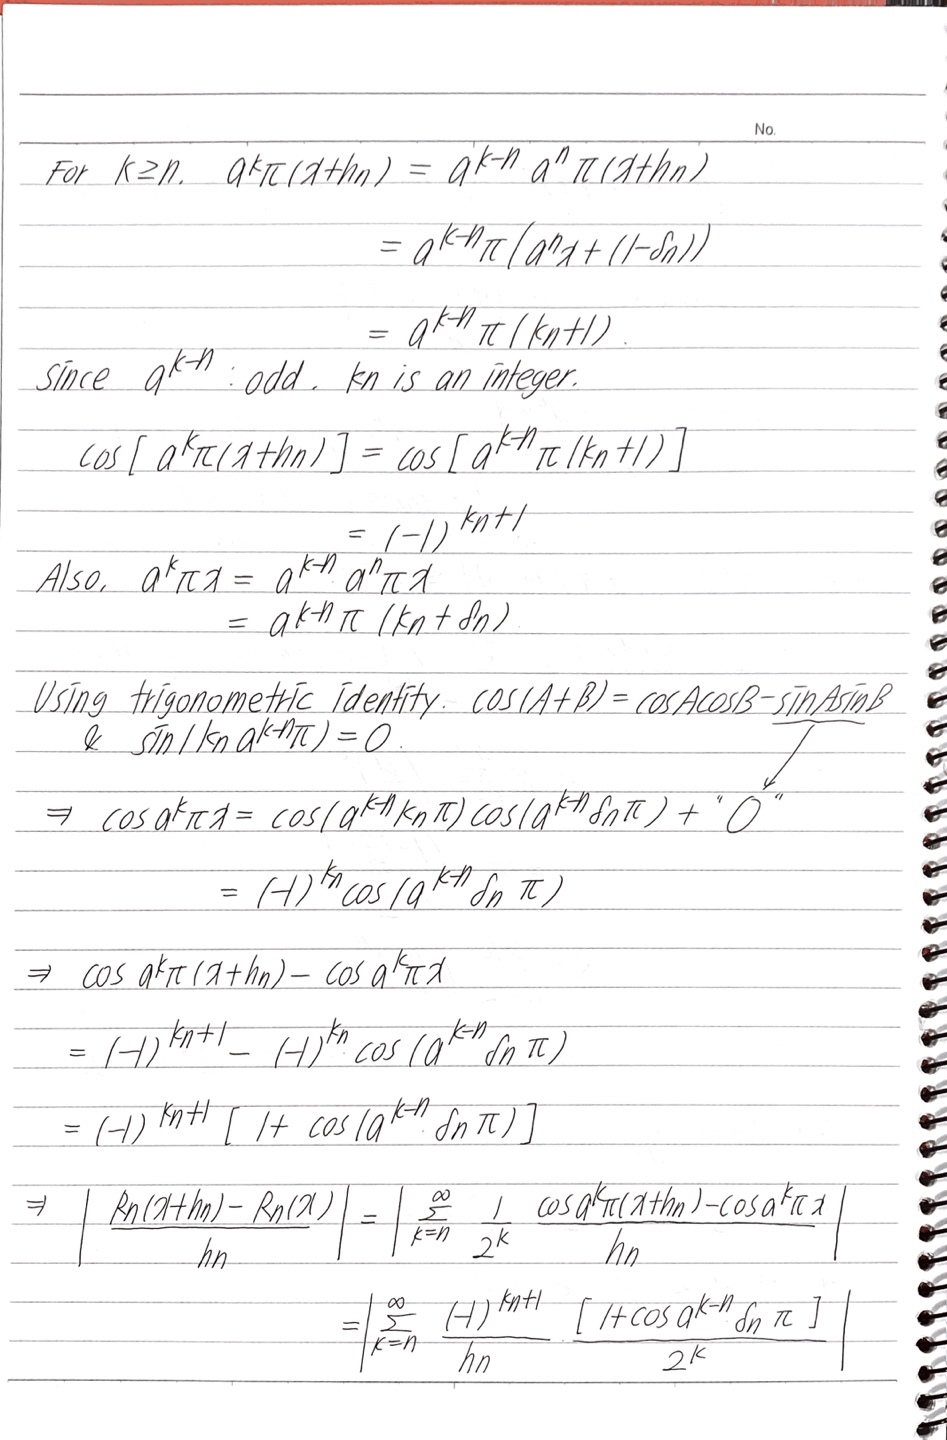 No.
For k≥n. aᵏπ(x+hn) = aᵏ⁻ⁿ aⁿ π(x+hn)
= aᵏ⁻ⁿπ(aⁿx + (1-δn))
= aᵏ⁻ⁿ π(kn+1).
Since aᵏ⁻ⁿ : odd. kn is an integer.
cos[aᵏπ(x+hn)] = cos[aᵏ⁻ⁿπ(kn+1)]
= (-1)^kn+1
Also, aᵏπx = aᵏ⁻ⁿ aⁿπx
= aᵏ⁻ⁿπ (kn + δn)
Using trigonometric identity. cos(A+B) = cosAcosB-sinAsinB
& sin(kn aᵏ⁻ⁿπ) = 0.
⇒ cos aᵏπx = cos(aᵏ⁻ⁿknπ) cos(aᵏ⁻ⁿδnπ) + "0"
= (-1)^kn cos(aᵏ⁻ⁿ δn π)
⇒ cos aᵏπ(x+hn) - cos aᵏπx
= (-1)^kn+1 - (-1)^kn cos(aᵏ⁻ⁿ δn π)
= (-1)^kn+1 [1+ cos(aᵏ⁻ⁿ δn π)]
⇒ | (Rn(x+hn) - Rn(x))/hn | = | ∞Σk=n 1/2ᵏ (cosaᵏπ(x+hn)-cosaᵏπx)/hn |
= | ∞Σk=n (-1)^kn+1/hn [1+cos aᵏ⁻ⁿ δn π]/2ᵏ |